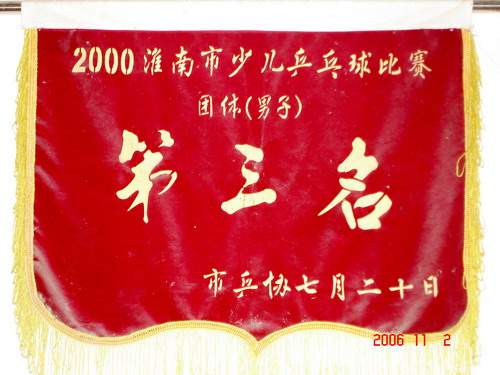 2000淮南市少儿乒乓球比赛
团体(男子)
第三名
市乒协七月二十日
2006 11 2